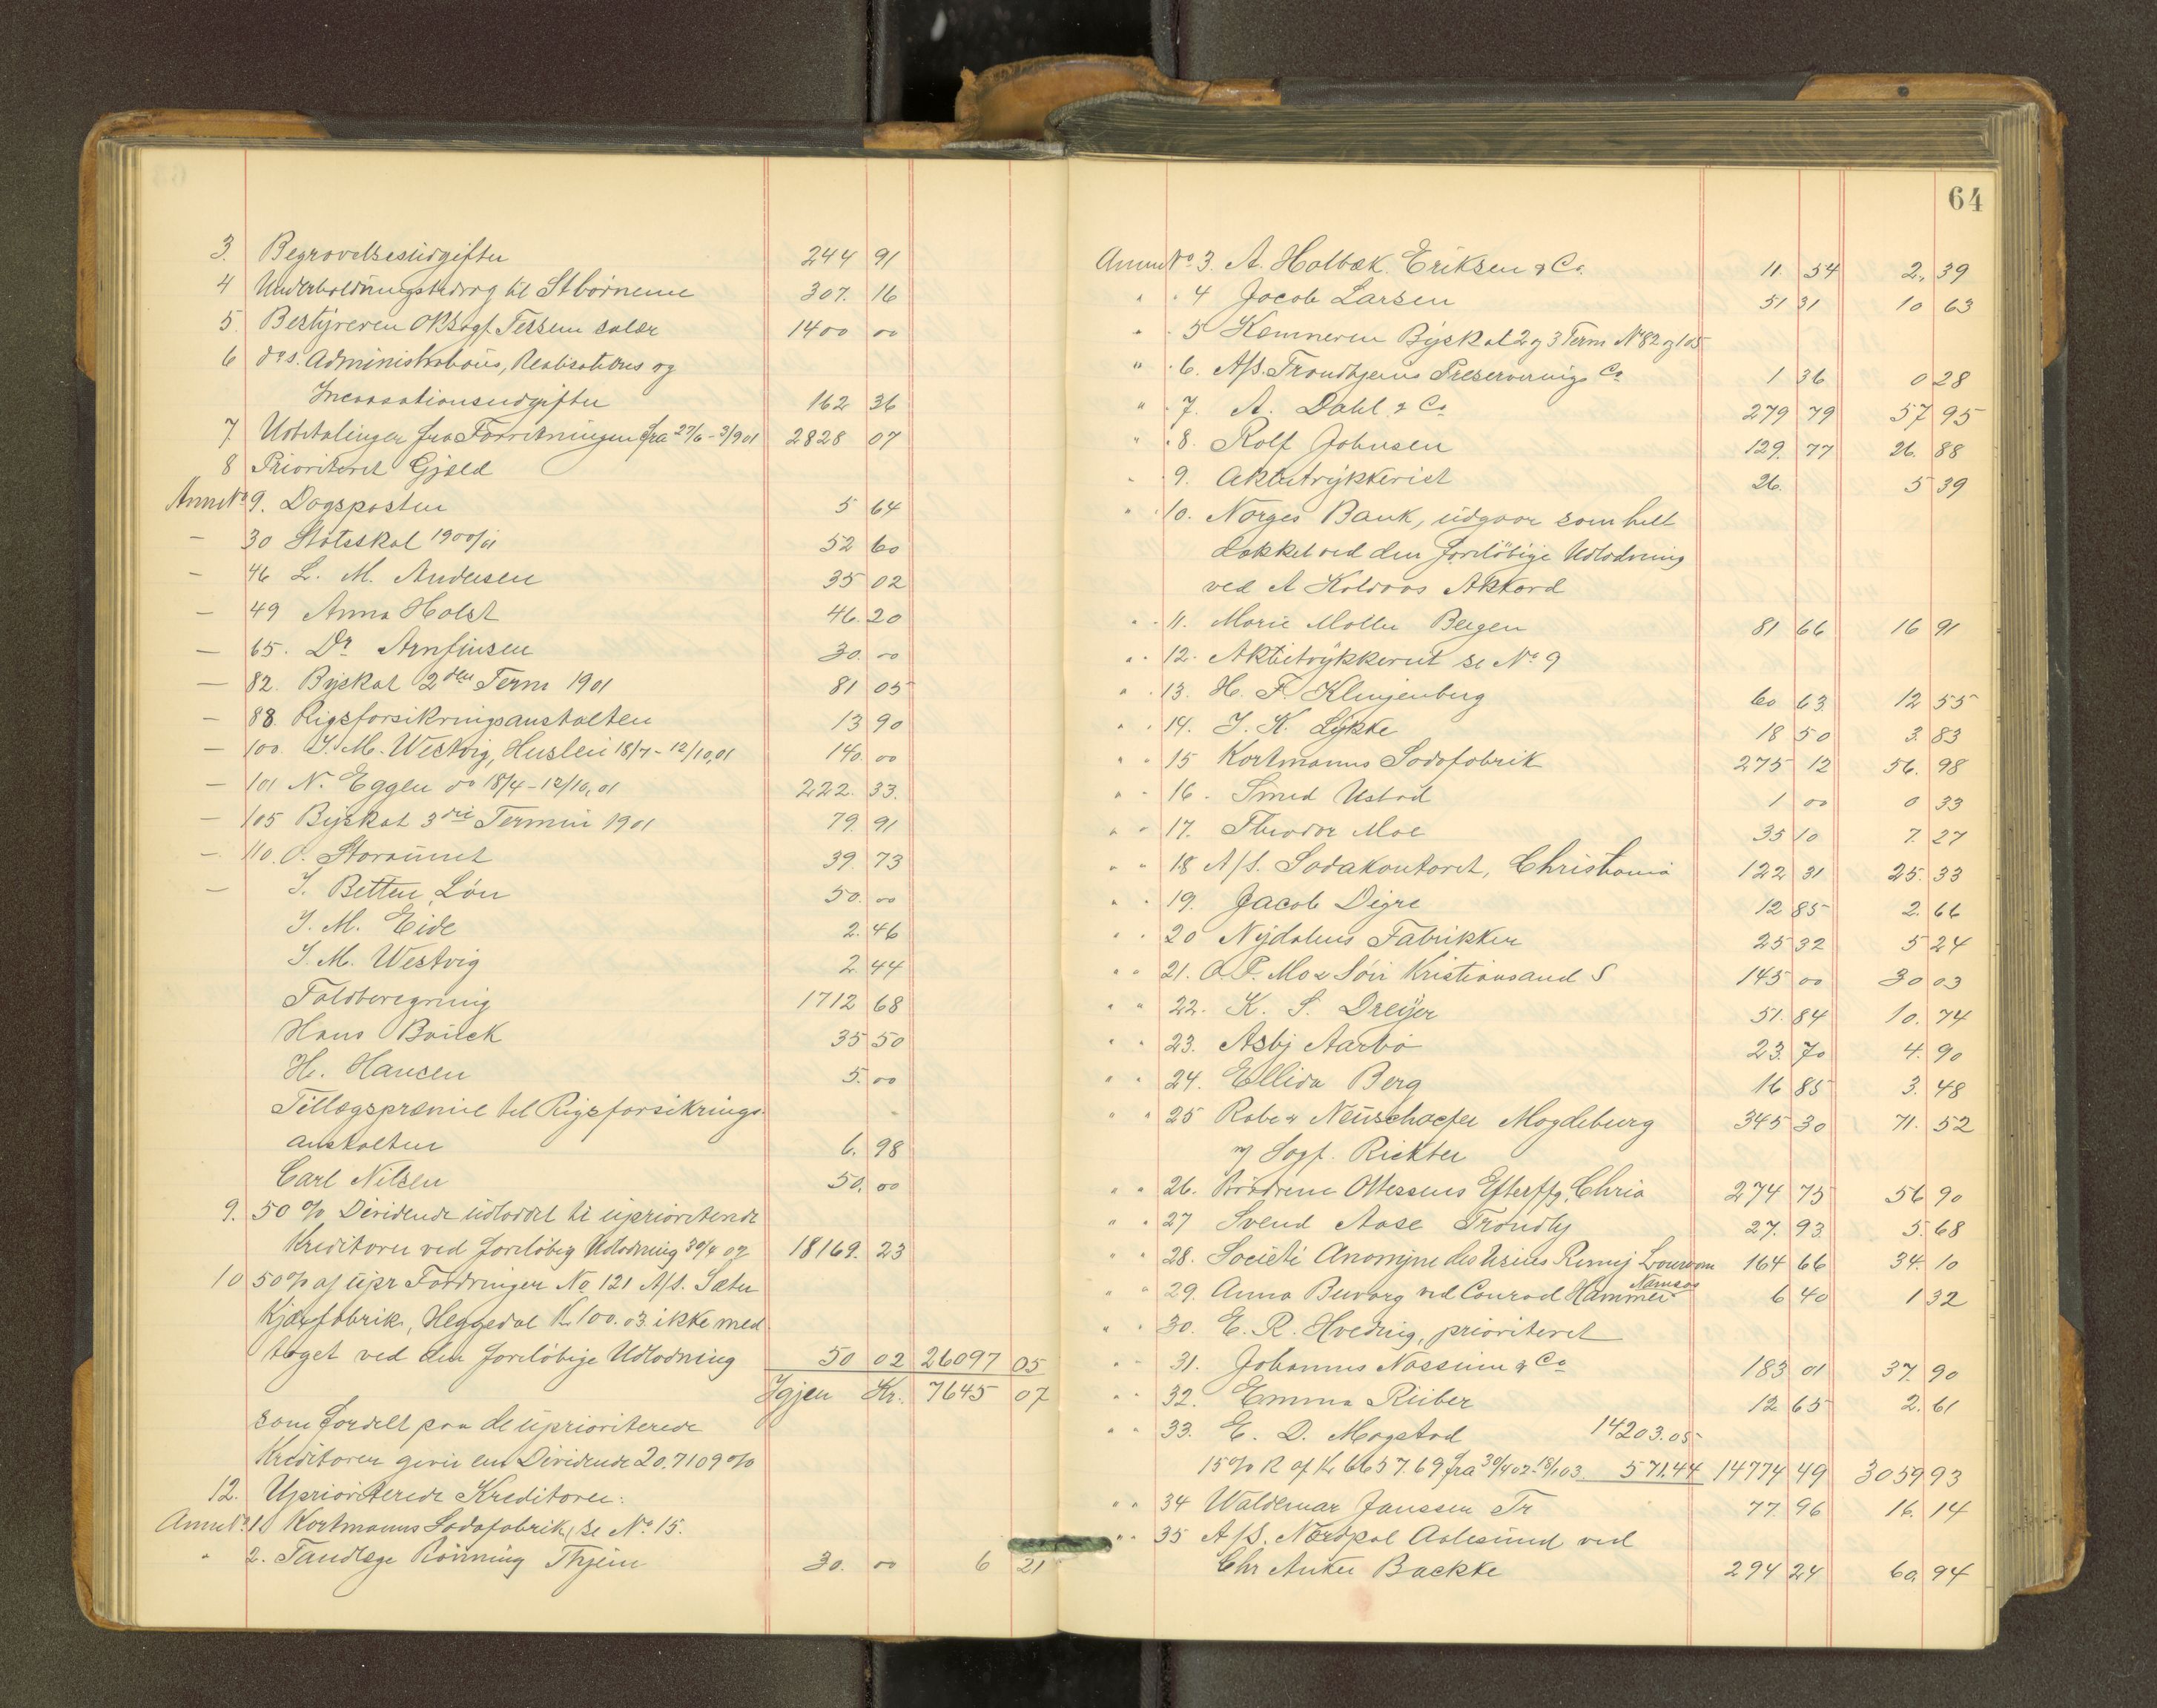 3. Begravelsesudgifter 244 91
4 Underholdningsbidrag til Stbörnene 307. 16
5. Bestyreren ORSagf. Tessem salær 1400 00
6 do s. Administrations, Realisations og
Incassationsudgifter 162 36
7. Udbetalinger fra Forretningen fra 27/6 - 3/9 01 2828 07
8 Prioriteret Gjæld
Anm No 9. Dagsposten 5 64
— 30 Statsskat 1900/01 52 60
— 46 L. M. Andersen 35 02
— 49 Anna Holst 46. 20
— 65. Dr Arnfinsen 30. 00
— 82. Byskat 2den Term 1901 81 05
— 88 Rigsforsikringsanstalten 13 90
— 100. J. M. Westvig, Husleie 18/7 - 12/10,01 140. 00
— 101 N. Eggen do 18/4 - 12/10,01 222. 33.
— 105 Byskat 3die Termin 1901 79. 91
— 110. O. Storaunet 39. 73
— J. Betten, Lön 50. 00
J. M. Eide 2. 46
J. M. Westvig 2. 44
Toldberegning 1712 68
Hans Bauck 35 50
H. Hansen 5. 00
Tillægspræmie til Rigsforsikrings-
anstalten 6. 98
Carl Nilsen 50. 00
9. 50 % Dividende udloddet til upriorit­erede
Kreditorer ved foreløbig Udlodning 30/4 02 18169. 23
10 50 % af upr Fordringer No 121 A/S. Sæter
Kjæxfabrik, Heggedal Kr 100.03 ikke med
taget ved den foreløbige Udlodning 50 02 26097 05
Igjen Kr. 7645 07
som fordelt paa de uprioriterede
Kreditorer giver en Dividende 20,7109 %
12. Uprioriterede Kreditorer:
Anm No 1. Kortmanns Sodafabrik, se No 15.
" 2. Tandlæge Rönning Thjem 30. 00 6 21
64
Anm No 3. A. Holbæk Eriksen & Co. 11. 54 2. 39
" " 4 Jacob Larsen 51 31 10 63
" " 5 Kemneren Byskat 2 og 3 Term No 82 og 105
" " 6. A/S. Trondhjems Preserverings Co 1 36 0 28
" " 7. A. Dahl & Co 279 79 57 95
" " 8. Rolf Johnsen 129. 77 26. 88
" 9. Aktietrykkeriet 26. 5 39
" " 10. Norges Bank, udgaar som helt
dækket ved den foreløbige Udlodning
ved A Koldaas Akkord
" " 11. Marie Møller Bergen 81 66 16 91
" " 12. Aktietrykkeriet se No 9
" " 13. H. F. Klingenberg 60 63 12 55
" " 14. J. K. Lykke 18 50 3. 83
" " 15 Kortmanns Sodafabrik 275 12 56. 98
" " 16. Smed Ustad 1 00 0 33
" " 17. Theodor Moe 35 10 7. 27
" " 18 A/S. Sodakontoret, Christiania 122 31 25. 33
" " 19. Jacob Digre 12 85 2. 66
" " 20 Nydalens Fabrikker 25 32 5 24
" " 21. O. P. Moe & Sön Kristiansand S 145 00 30 03
" " 22. K. S. Dreyer 51. 84 10. 74
" " 23. Asbj Aarbo 23. 70 4. 90
" " 24. Ellida Berg 16 85 3. 48
" " 25 Rabe & Neuschaefer Magdeburg 345 30 71. 52
v/ Sagf. Richter
" " 26. Brödrene Ottessens Efterflg, Chria 274 75 56 90
" " 27 Svend Aase Trondhj 27. 93 5. 68
" " 28. Societé Anonyme des Usines Remy Louvain 164 66 34. 10
" " 29. Anna Buvarg ved Conrad Hammer Namsos 6 40 1 32
" " 30. E. R. Hveding, prioriteret
" " 31. Johannes Nossum & Co 183 01 37. 90
" " 32. Emma Rüber 12 65 2. 61
" " 33. E. D. Magstad 14203.05
15 % R af Kr 6657.69 fra 30/4 02 - 18/1 03 571.44 14774 49 3059 93
" " 34 Waldemar Janssen Tr 77. 96 16. 14
" " 35 A/S. Nordpol Aalesund ved
Chr Anker Backke 294 24 60. 94